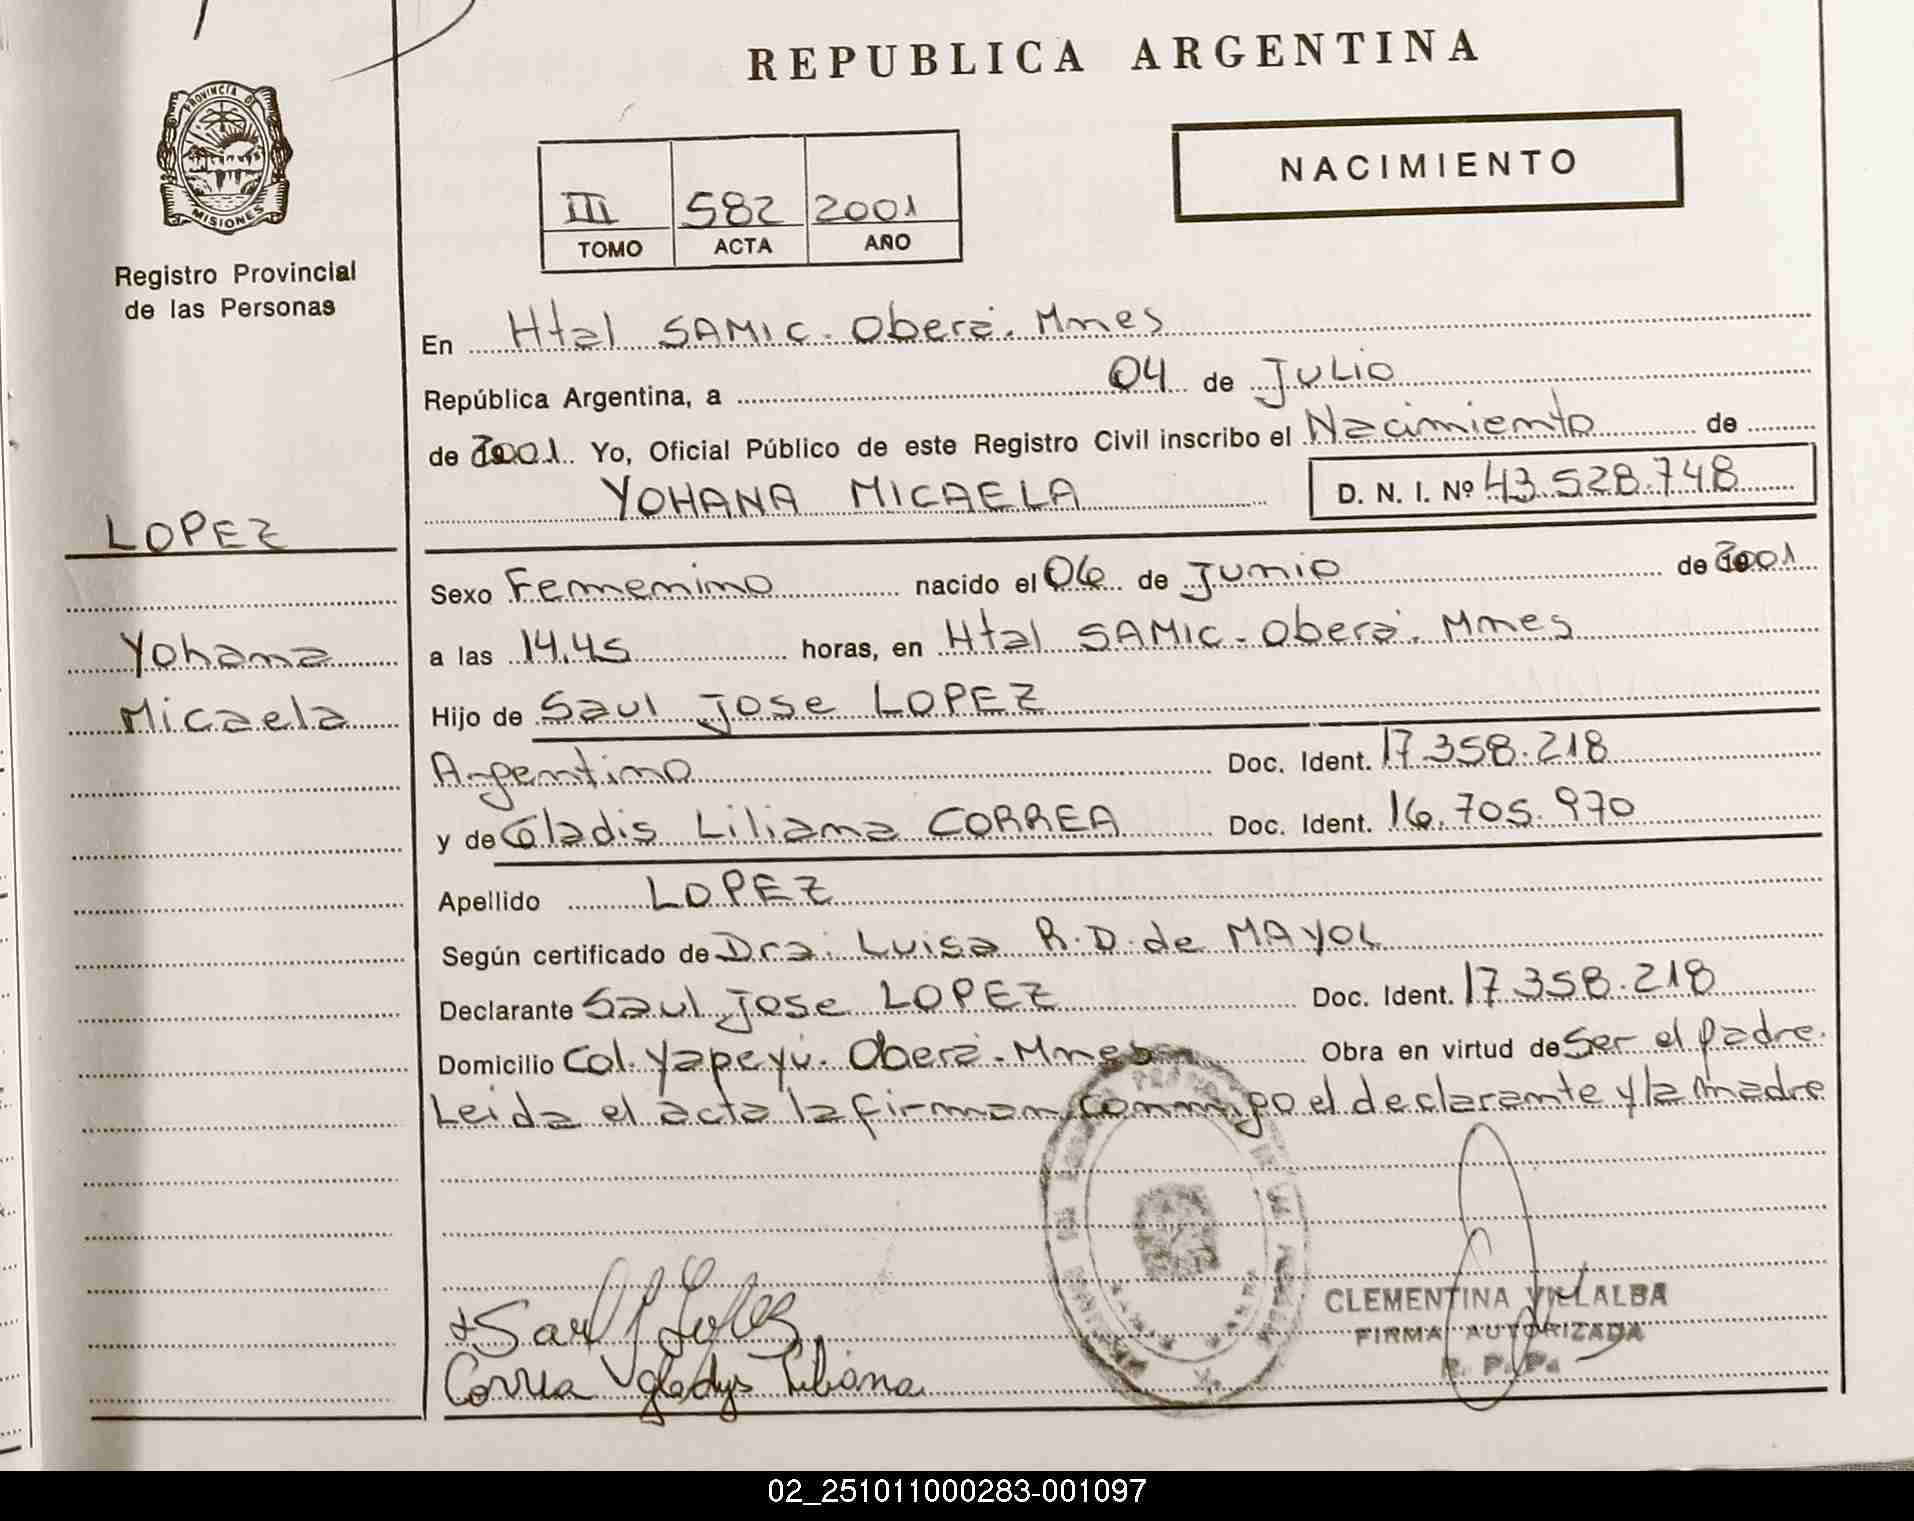 REPUBLICA ARGENTINA
PROVINCIA DE
MISIONES
Registro Provincial
de las Personas
NACIMIENTO
III 582 2001
TOMO ACTA AÑO
En Htal SAMIC. Oberá. Mnes
República Argentina, a 04 de Julio
de 2001 Yo, Oficial Público de este Registro Civil inscribo el Nacimiento de
YOHANA MICAELA D. N. I. Nº 43.528.748
LOPEZ
Yohana
Micaela
Sexo Femenino nacido el 06 de Junio de 2001
a las 14.45 horas, en Htal SAMIC. Oberá. Mnes
Hijo de Saul Jose LOPEZ
Argentino Doc. Ident. 17.358.218
y de Gladis Liliana CORREA Doc. Ident. 16.705.970
Apellido LOPEZ
Según certificado de Dra. Luisa R.D. de MAYOL
Declarante Saul Jose LOPEZ Doc. Ident. 17.358.218
Domicilio Col. Yapeyú. Oberá. Mnes Obra en virtud de Ser el padre.
Leida el acta la firman conmigo el declarante y la madre
Saul J Lopez
Correa Gladys Liliana
CLEMENTINA VILLALBA
FIRMA AUTORIZADA
R. P. P.
02_251011000283-001097